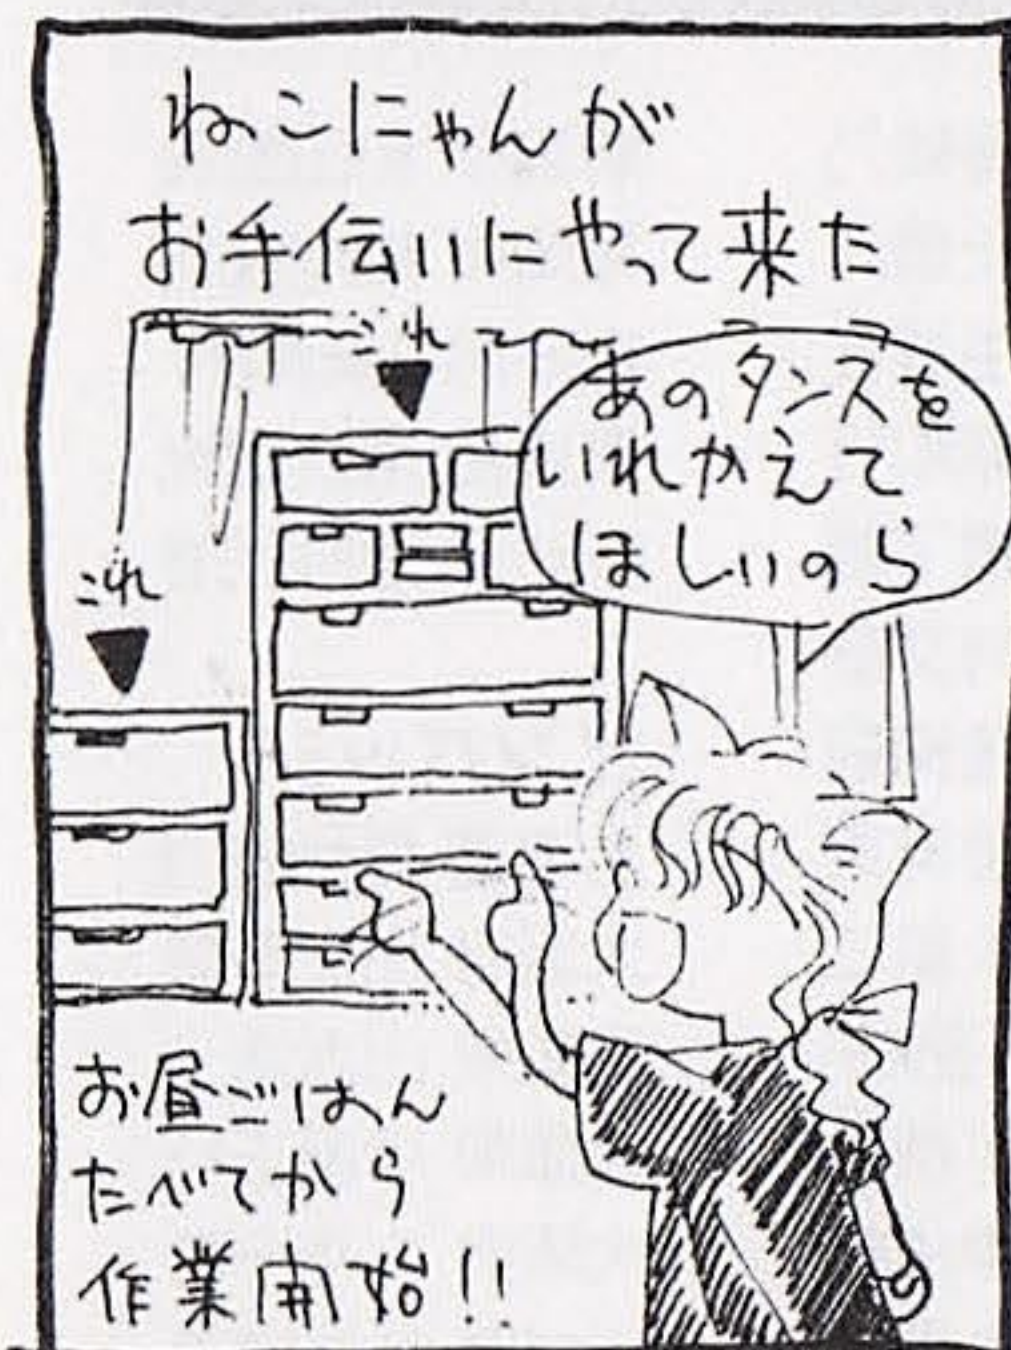 ねこにゃんが
お手伝いにやって来た
これ
あのタンスを
いれかえて
ほしいのら
これ
お昼ごはん
たべてから
作業開始!!